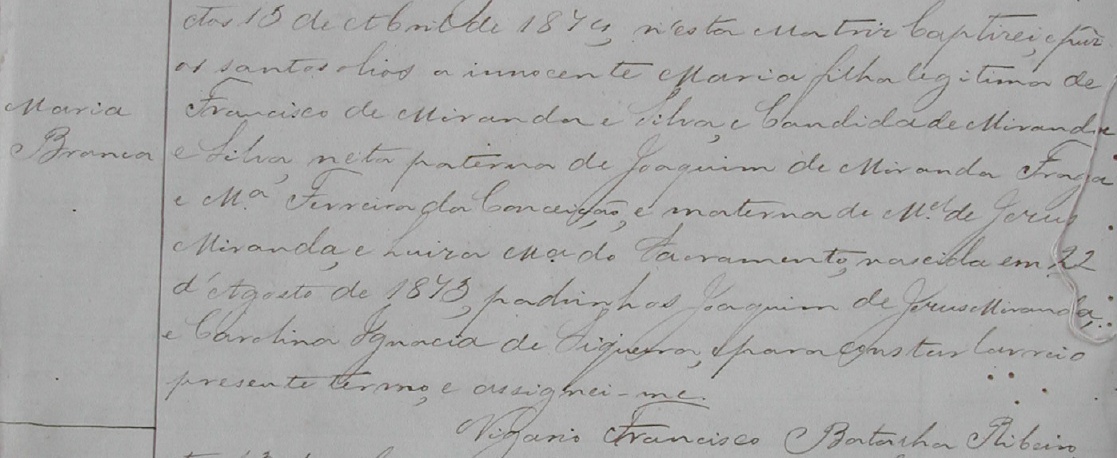 Maria
Branca
Aos 13 de Abril de 1874, n'esta Matriz baptizei, e puz
os santos olios a innocente Maria filha legitima de
Francisco de Miranda e Silva, e Candida de Miranda
e Silva, neta paterna de Joaquim de Miranda Fraga
e M.ª Ferreira da Conceição, e materna de M.el de Jesus
Miranda, e Luiza Ma do Sacramento, nascida em 22
d'Agosto de 1873, padrinhos Joaquim de Jesus Miranda,
e Carolina Ignacia de Siqueira, e para constar lavrei o
presente termo, e assignei-me.
Vigario Francisco Batalha Ribeiro